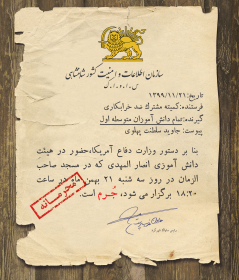 سازمان اطلاعات و امنیت کشور شاهنشاهی
س-ا-و-ا-ک
تاریخ: ۱۳۹۹/۱۱/۲۱
فرستنده: کمیته مشترک ضد خرابکاری
گیرنده: تمام دانش آموزان متوسطه اول
پیوست: جاوید سلطنت پهلوی
بنا بر دستور وزارت دفاع آمریکا، حضور در هیئت
دانش آموزی انصار المهدی که در مسجد صاحب
الزمان در روز سه شنبه ۲۱ بهمن ماه در ساعت
۱۸:۲۰ برگزار می شود، جُرم است.
محرمانه